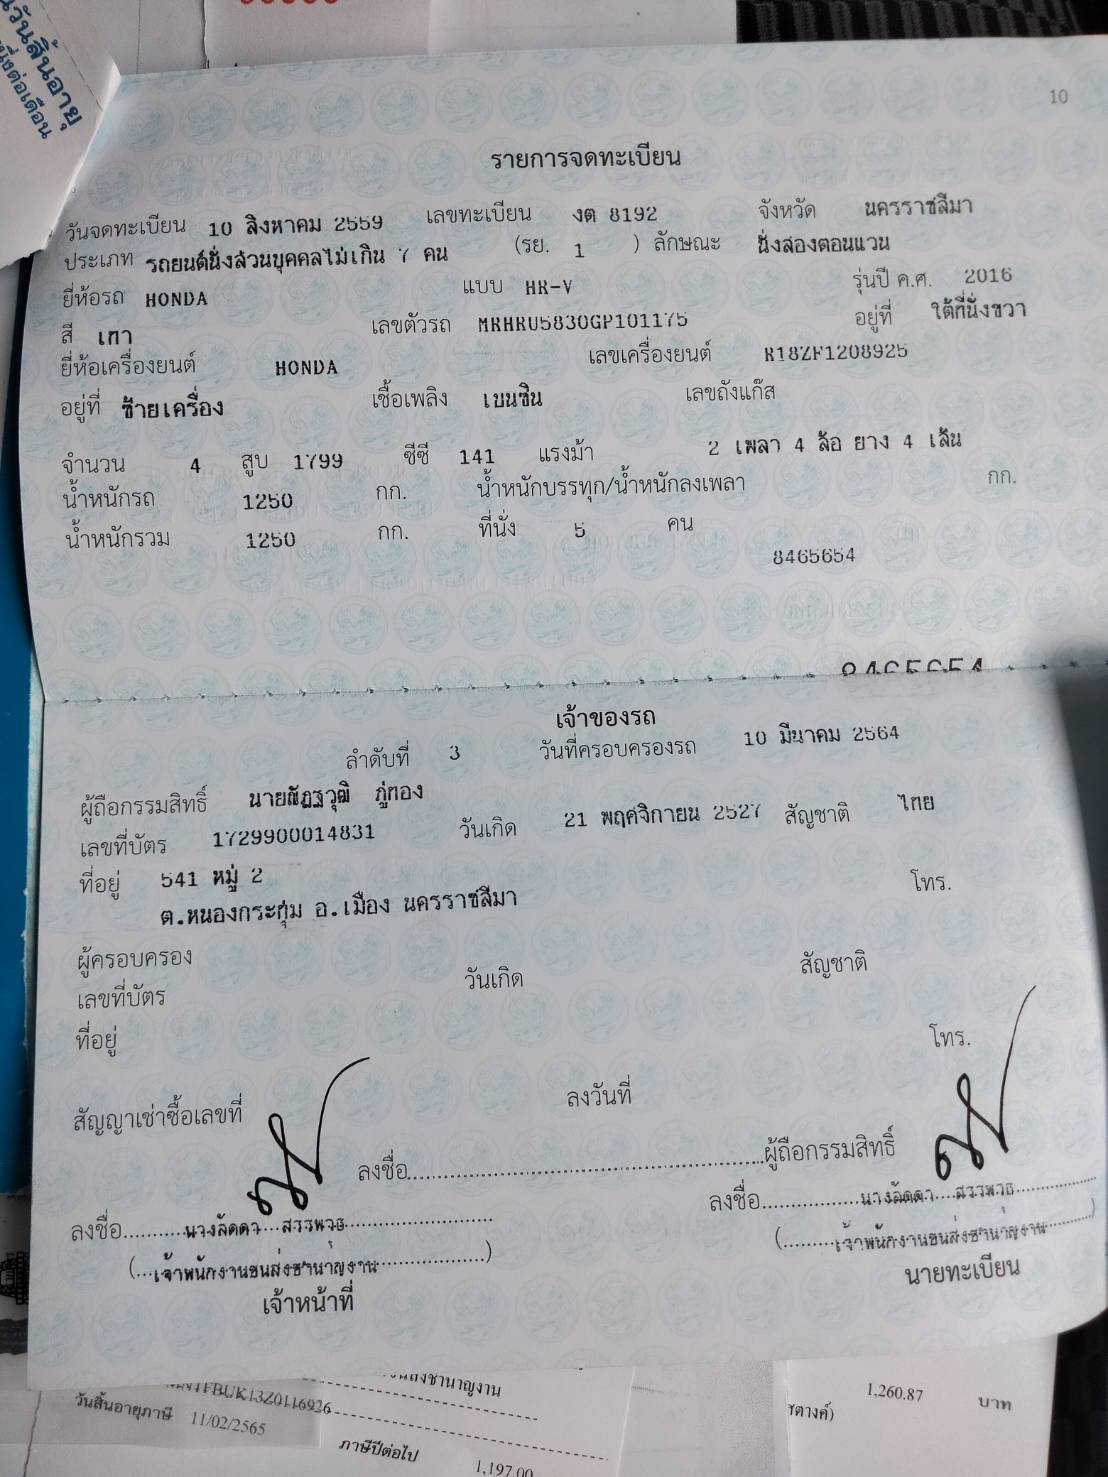 นวันสิ้นอายุ
10
รายการจดทะเบียน
วันจดทะเบียน 10 สิงหาคม 2559 เลขทะเบียน งต 8192 จังหวัด นครราชสีมา
ประเภท รถยนต์นั่งส่วนบุคคลไม่เกิน 7 คน (รย. 1 ) ลักษณะ นั่งสองตอนแวน
ยี่ห้อรถ HONDA แบบ HR-V รุ่นปี ค.ศ. 2016
สี เทา เลขตัวรถ MRHRU5830GP101175 อยู่ที่ ใต้ที่นั่งขวา
ยี่ห้อเครื่องยนต์ HONDA เลขเครื่องยนต์ R18ZF1208925
อยู่ที่ ซ้ายเครื่อง เชื้อเพลิง เบนซิน เลขถังแก๊ส
จำนวน 4 สูบ 1799 ซีซี 141 แรงม้า 2 เพลา 4 ล้อ ยาง 4 เส้น
น้ำหนักรถ 1250 กก. น้ำหนักบรรทุก/น้ำหนักลงเพลา กก.
น้ำหนักรวม 1250 กก. ที่นั่ง 5 คน
8465654
8465654
เจ้าของรถ
ลำดับที่ 3 วันที่ครอบครองรถ 10 มีนาคม 2564
ผู้ถือกรรมสิทธิ์ นายณัฏฐวุฒิ ภู่ทอง
เลขที่บัตร 1729900014831 วันเกิด 21 พฤศจิกายน 2527 สัญชาติ ไทย
ที่อยู่ 541 หมู่ 2 โทร.
ต.หนองกระทุ่ม อ.เมือง นครราชสีมา
ผู้ครอบครอง
เลขที่บัตร วันเกิด สัญชาติ
ที่อยู่ โทร.
สัญญาเช่าซื้อเลขที่ ลงวันที่
ลงชื่อ ผู้ถือกรรมสิทธิ์
ลงชื่อ นางลัดดา สรรพวุธ ลงชื่อ นางลัดดา สรรพวุธ
( เจ้าพนักงานขนส่งชำนาญงาน ) ( เจ้าพนักงานขนส่งชำนาญงาน )
เจ้าหน้าที่ นายทะเบียน
วันสิ้นอายุภาษี 11/02/2565
ภาษีปีต่อไป 1,197.00
1,260.87 บาท